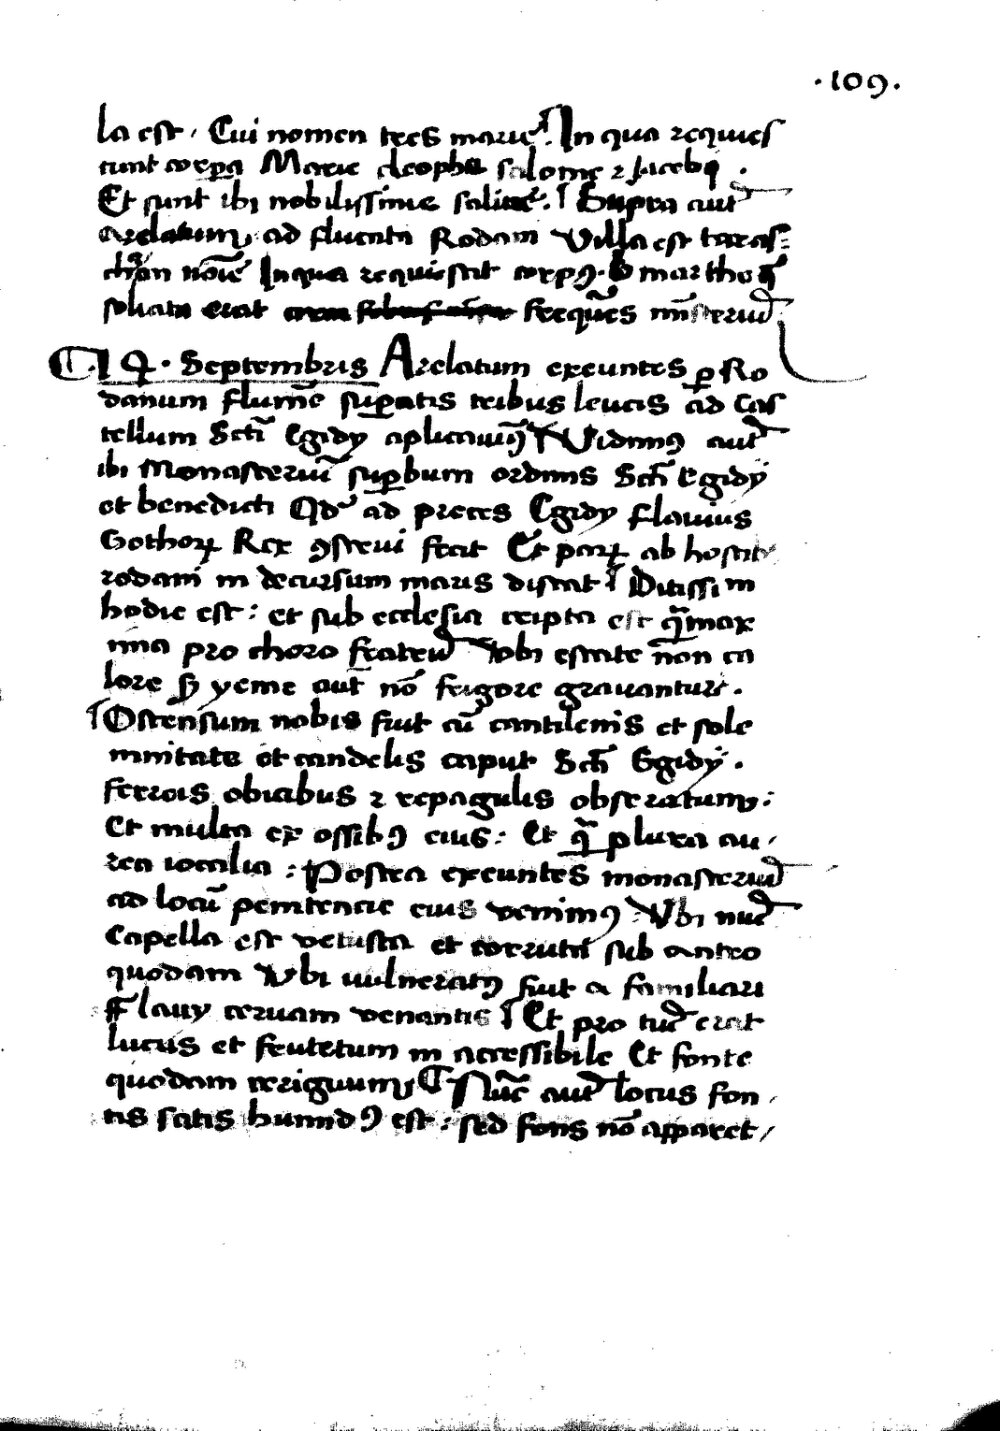 ·109·
la est / Cui nomen tres marie ̄ In qua requies
cunt corꝑa Marie cleophe salome ⁊ Jacobi ·
Et sunt ibi nobilissime saline · Supra aut̄
arelatum, ad fluenta Rodani Villa est taras=
chōn noīe In qua requiescit corpꝰ · b marthe q̄
soliata erat frequēs mīsteriū
¶ · 14 · Septembris Arelatum exeuntes ꝑ Ro
danum flumē suꝑatis tribus leucis ad Cas
tellum Scti Egidy aplicauimꝰ Vidimꝰ aut̄
ibi Monasteriū suꝑbum ordinis Scti Egidy
et benedicti Qd̄ ad preces Egidy flauius
Gothoꝝ Rex ꝯstrui fecit Et paꝝ ab hostiis
rodani in decursum maris distat Ditissim
hodie est : et sub ecclesia cripta est q̄ max
ima pro choro fratrū Vbi estate non ca
lore sꝫ yeme aut̄ nō frigore grauantur ·
Ostensum nobis fuit cū cantilenis et sole
mnitate et candelis caput Scti Egidy ·
ferreis obicibus ⁊ repagulis obseratum, :
Et multa ex ossibꝰ eius : Et q̄ plura au /
rea iocalia : Postea exeuntes monasteriū
ad locū penitencie eius venimꝰ : Vbi nūc
Capella est vetusta et corruta sub antro
quodam Vbi vulneratꝰ fuit a familiari
Flauy ceruam venantis Et pro tūc erat
lucus et frutetum in accessibile Et fonte
quodam irriguum, ¶ Nūc aut̄ locus fon /
tis satis humidꝰ est : sed fons nō apparet /